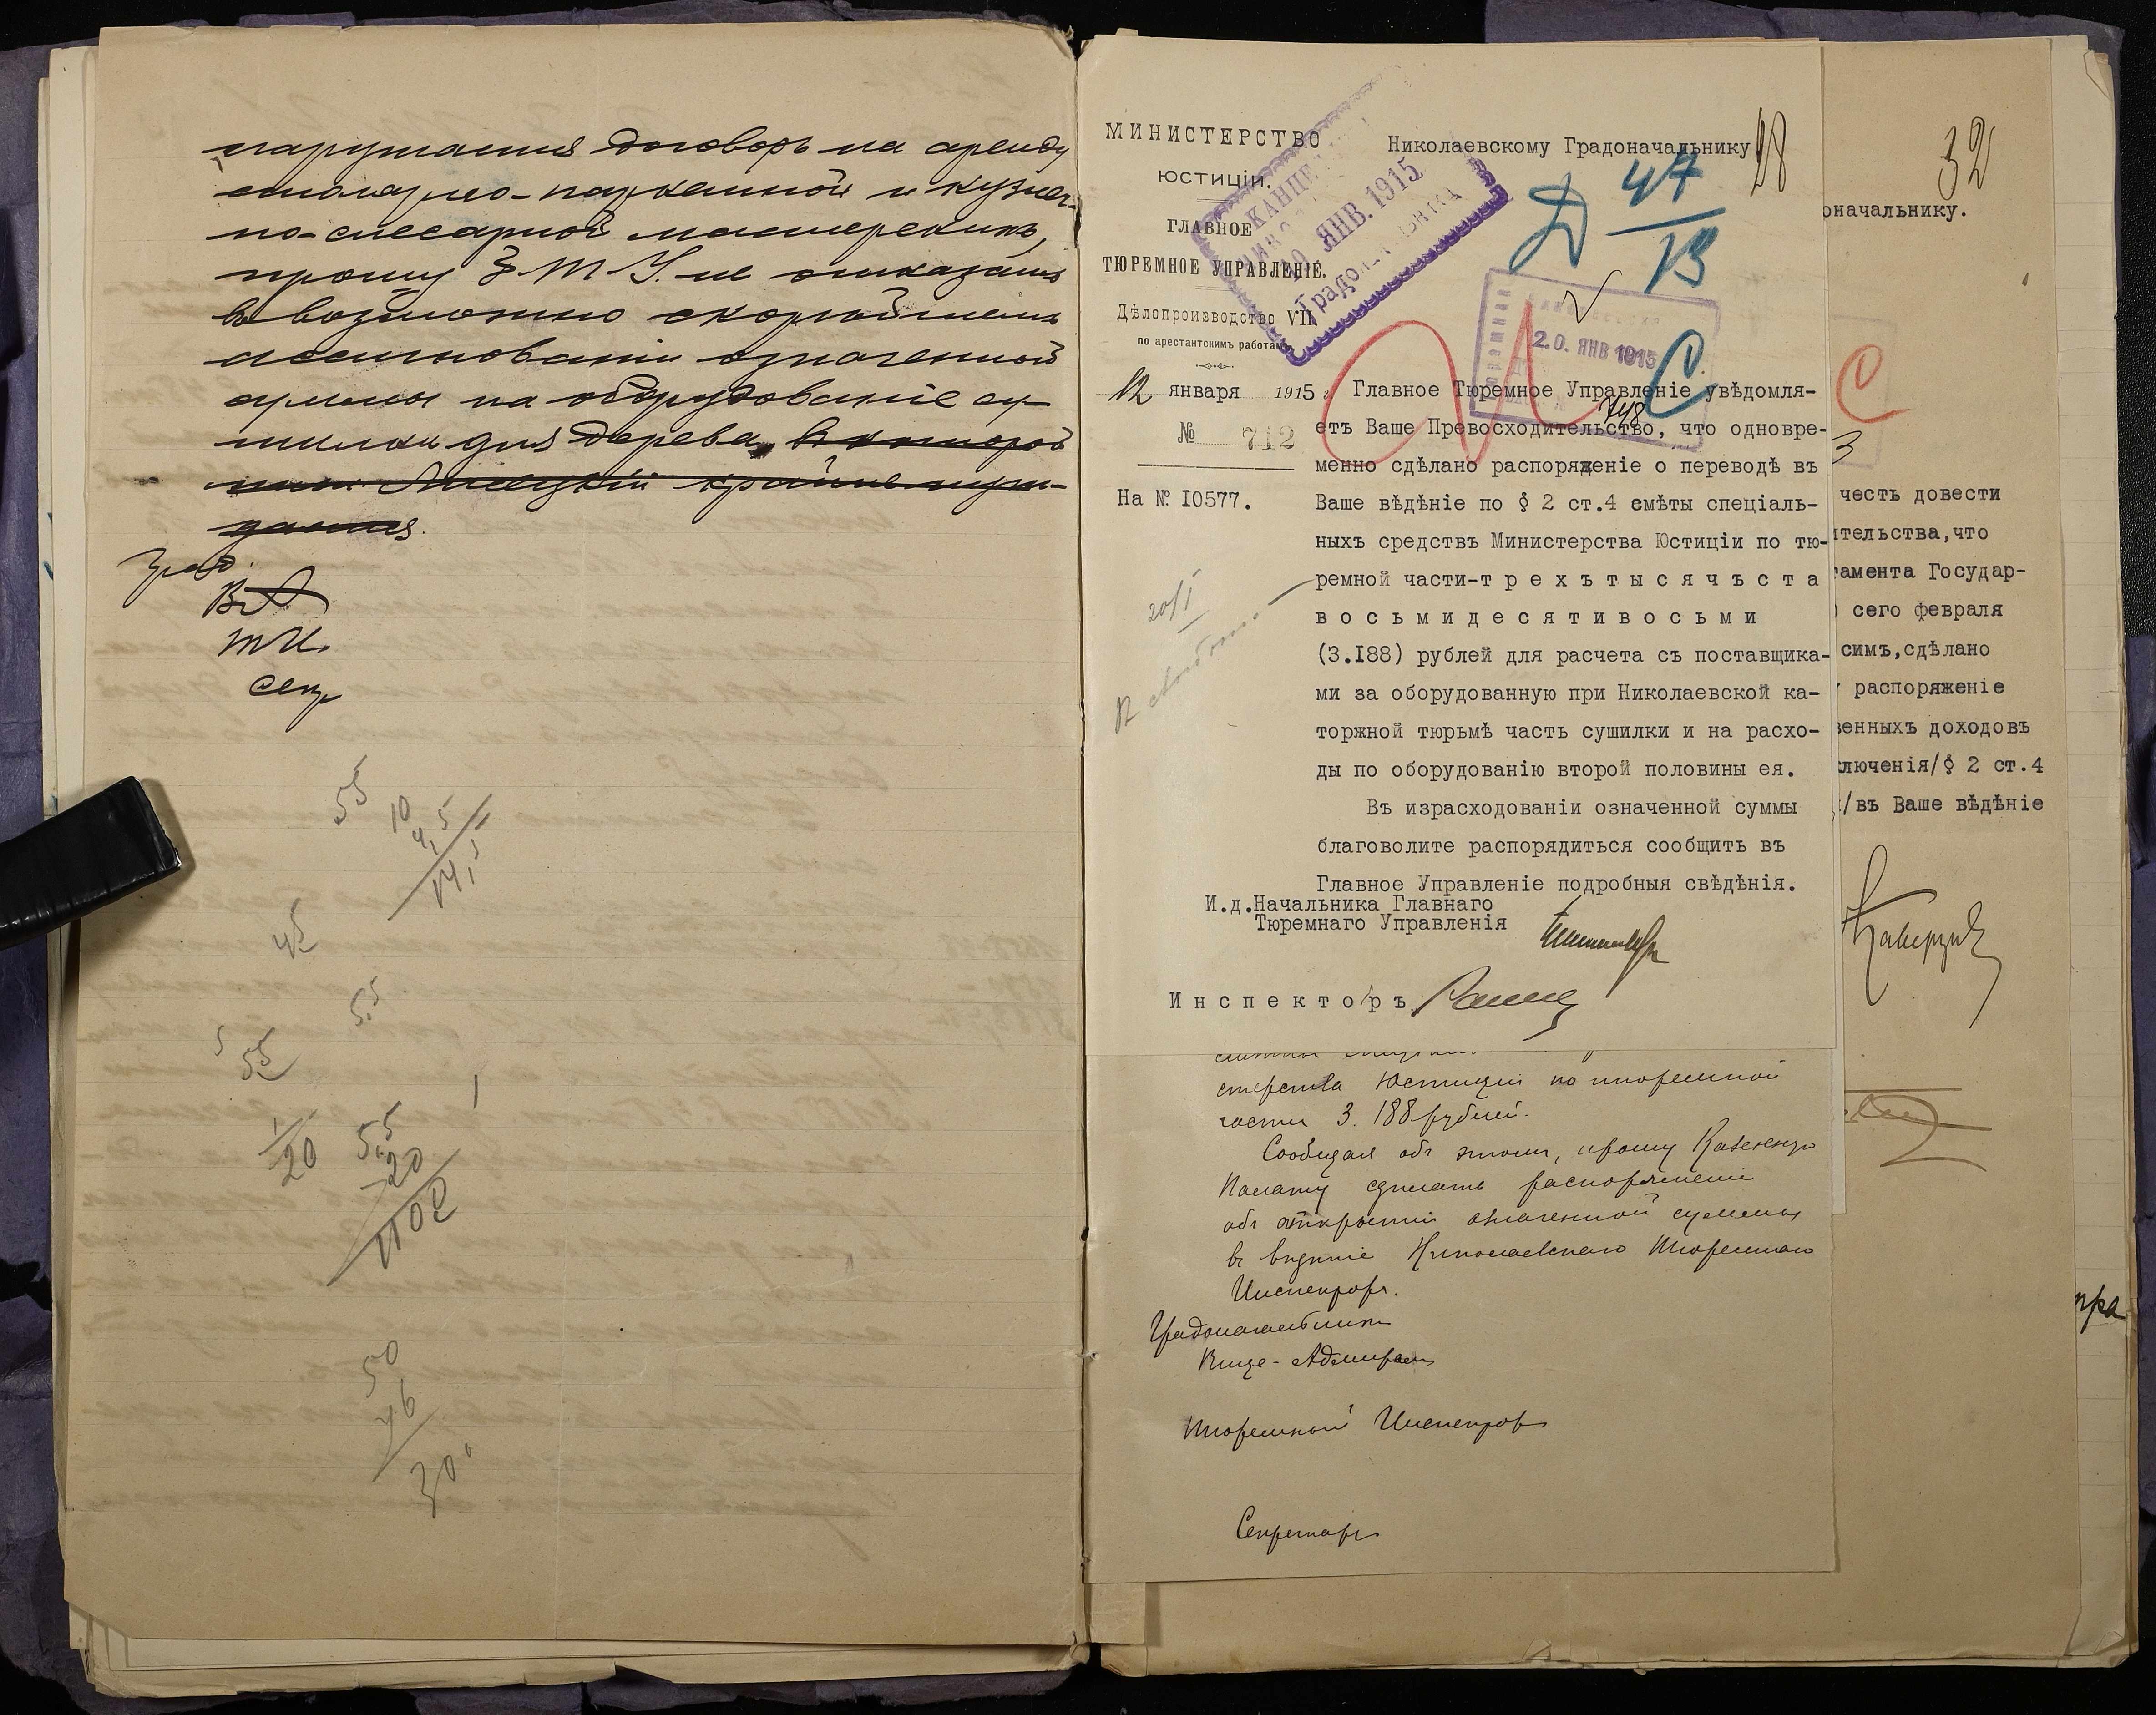 нарушения договоръ на аренду
столярно-паркетной и кузнеч-
но-слесарной мастерскихъ,
прошу Г. Т. У. не отказать
въ возможно скорѣйшемъ
ассигнованіи означенной
суммы на оборудованіе су-
шилки для дерева, въ которой
крайне нуж-
дается.
Град.
В А
Т И.
Секр
55
10
4,5
14,5
45
5.5
5
55
1/20
5,5
20
1100
50
46
300
МИНИСТЕРСТВО
ЮСТИЦІИ.
ГЛАВНОЕ
ТЮРЕМНОЕ УПРАВЛЕНІЕ.
Дѣлопроизводство VII.
по арестантскимъ работамъ
12 января 1915 г.
№ 712
На № I0577.
20/I
Николаевскому Градоначальнику
28
Д 47/13
ЯНВ. 1915
20. ЯНВ 1915
748
С
Главное Тюремное Управленіе увѣдомля-
етъ Ваше Превосходительство, что одновре-
менно сдѣлано распоряженіе о переводѣ въ
Ваше вѣдѣніе по § 2 ст.4 смѣты спеціаль-
ныхъ средствъ Министерства Юстиціи по тю-
ремной части-т р е х ъ т ы с я ч ъ с т а
в о с ь м и д е с я т и в о с ь м и
(3.I88) рублей для расчета съ поставщика-
ми за оборудованную при Николаевской ка-
торжной тюрьмѣ часть сушилки и на расхо-
ды по оборудованію второй половины ея.
Въ израсходованіи означенной суммы
благоволите распорядиться сообщить въ
Главное Управленіе подробныя свѣдѣнія.
И.д.Начальника Главнаго
Тюремнаго Управленія
И н с п е к т о р ъ
стерства Юстиціи по тюремной
части 3.188 рублей.
Сообщая объ этомъ, прошу Казенную
Палату сдѣлать распоряженіе
объ открытіи означенной суммы
въ вѣдѣніе Николаевскаго Тюремнаго
Инспектора.
Градоначальникъ
Вице-Адмиралъ
Тюремный Инспекторъ
Секретарь
32
оначальнику.
С
3
честь довести
ительства,что
тамента Государ-
сего февраля
симъ,сдѣлано
распоряженіе
венныхъ доходовъ
ключенія/§ 2 ст.4
/въ Ваше вѣдѣніе
пра